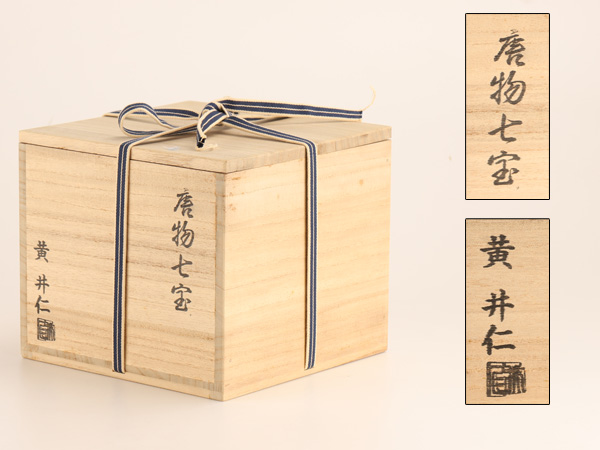 唐物七宝
黄井仁
唐物七宝
黄井仁